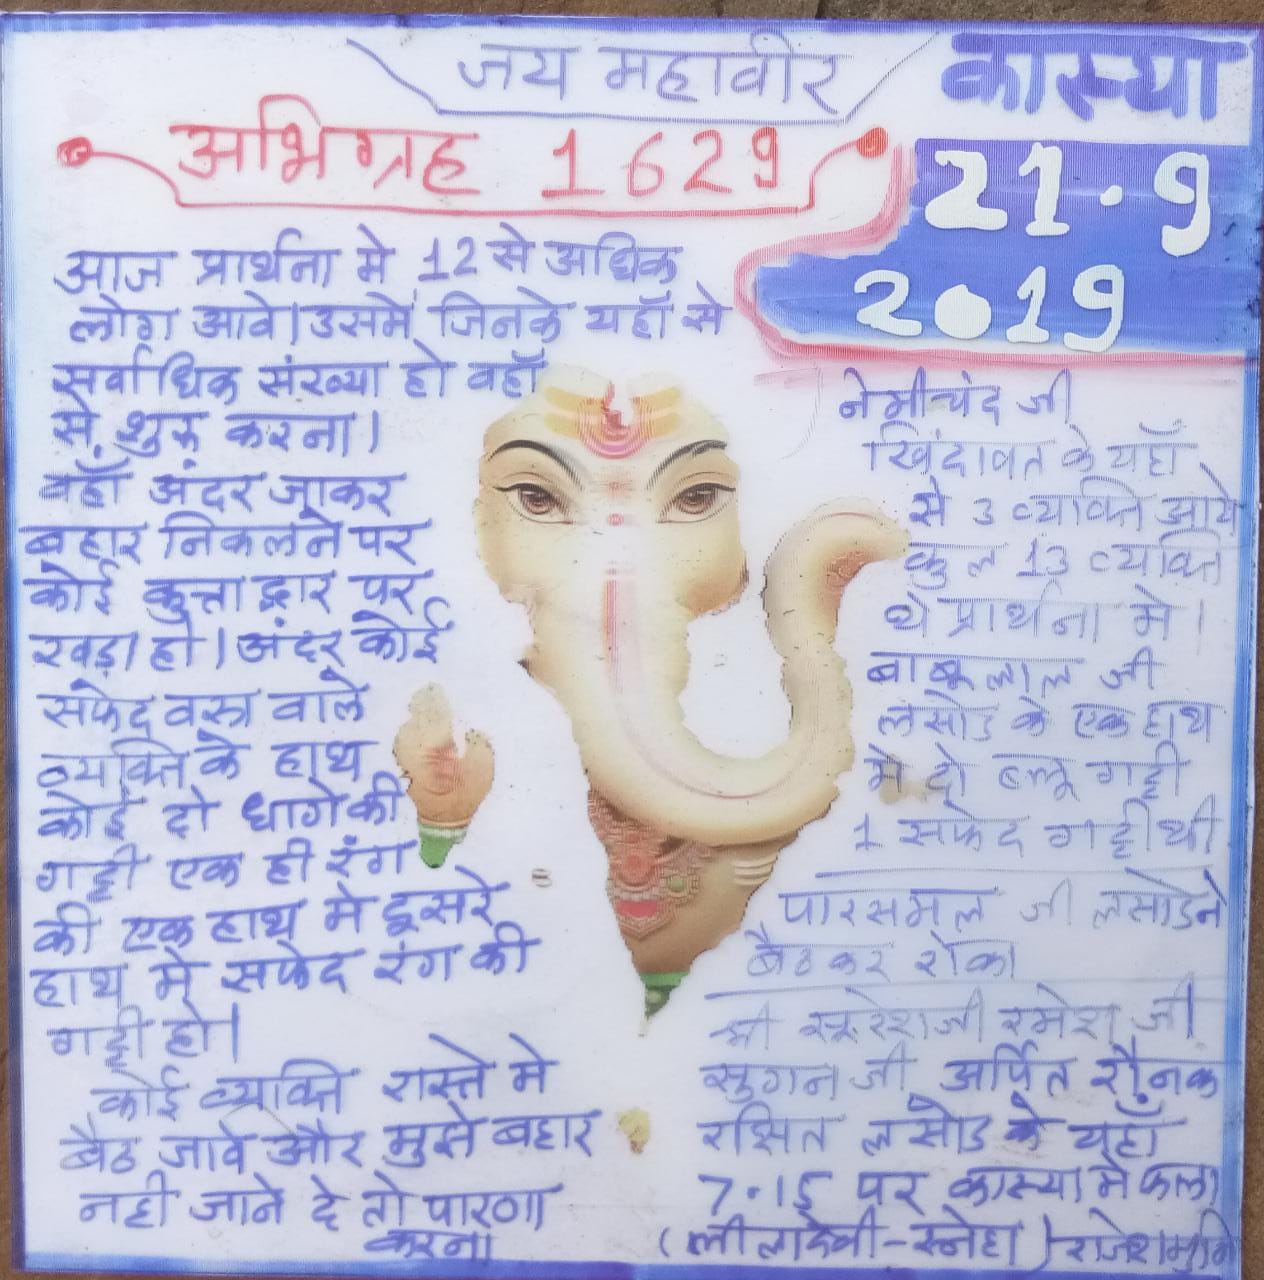 जय महावीर
कास्या
अभिग्रह 1629
21.9
2019
आज प्रार्थना मे 12 से अधिक
लोग आवे।उसमें जिनके यहाँ से
सर्वाधिक संख्या हो वहाँ
से शुरू करना।
वहाँ अंदर जाकर
बहार निकलने पर
कोई कुत्ता द्वार पर
खड़ा हो।अंदर कोई
सफेद वस्त्र वाले
व्यक्ति के हाथ
कोई दो धागे की
गट्टी एक ही रंग
की एक हाथ मे दूसरे
हाथ मे सफेद रंग की
गट्टी हो।
कोई व्यक्ति रास्ते मे
बैठ जावे और मुझे बहार
नही जाने दे तो पारणा
करना
नेमीचंद जी
खिंदावत के यहाँ
से 3 व्यक्ति आये
कुल 13 व्यक्ति
थे प्रार्थना मे।
बाबूलाल जी
लसोड के एक हाथ
मे दो ब्लू गट्टी
1 सफेद गट्टी थी
पारसमल जी लसोड ने
बैठकर रोका
श्री सूरेशजी रमेश जी
सुगन जी अर्पित रौनक
रक्षित लसोड के यहाँ
7.15 पर कास्या मे फला
(लीलादेवी-स्नेहा) राजेशमुनि